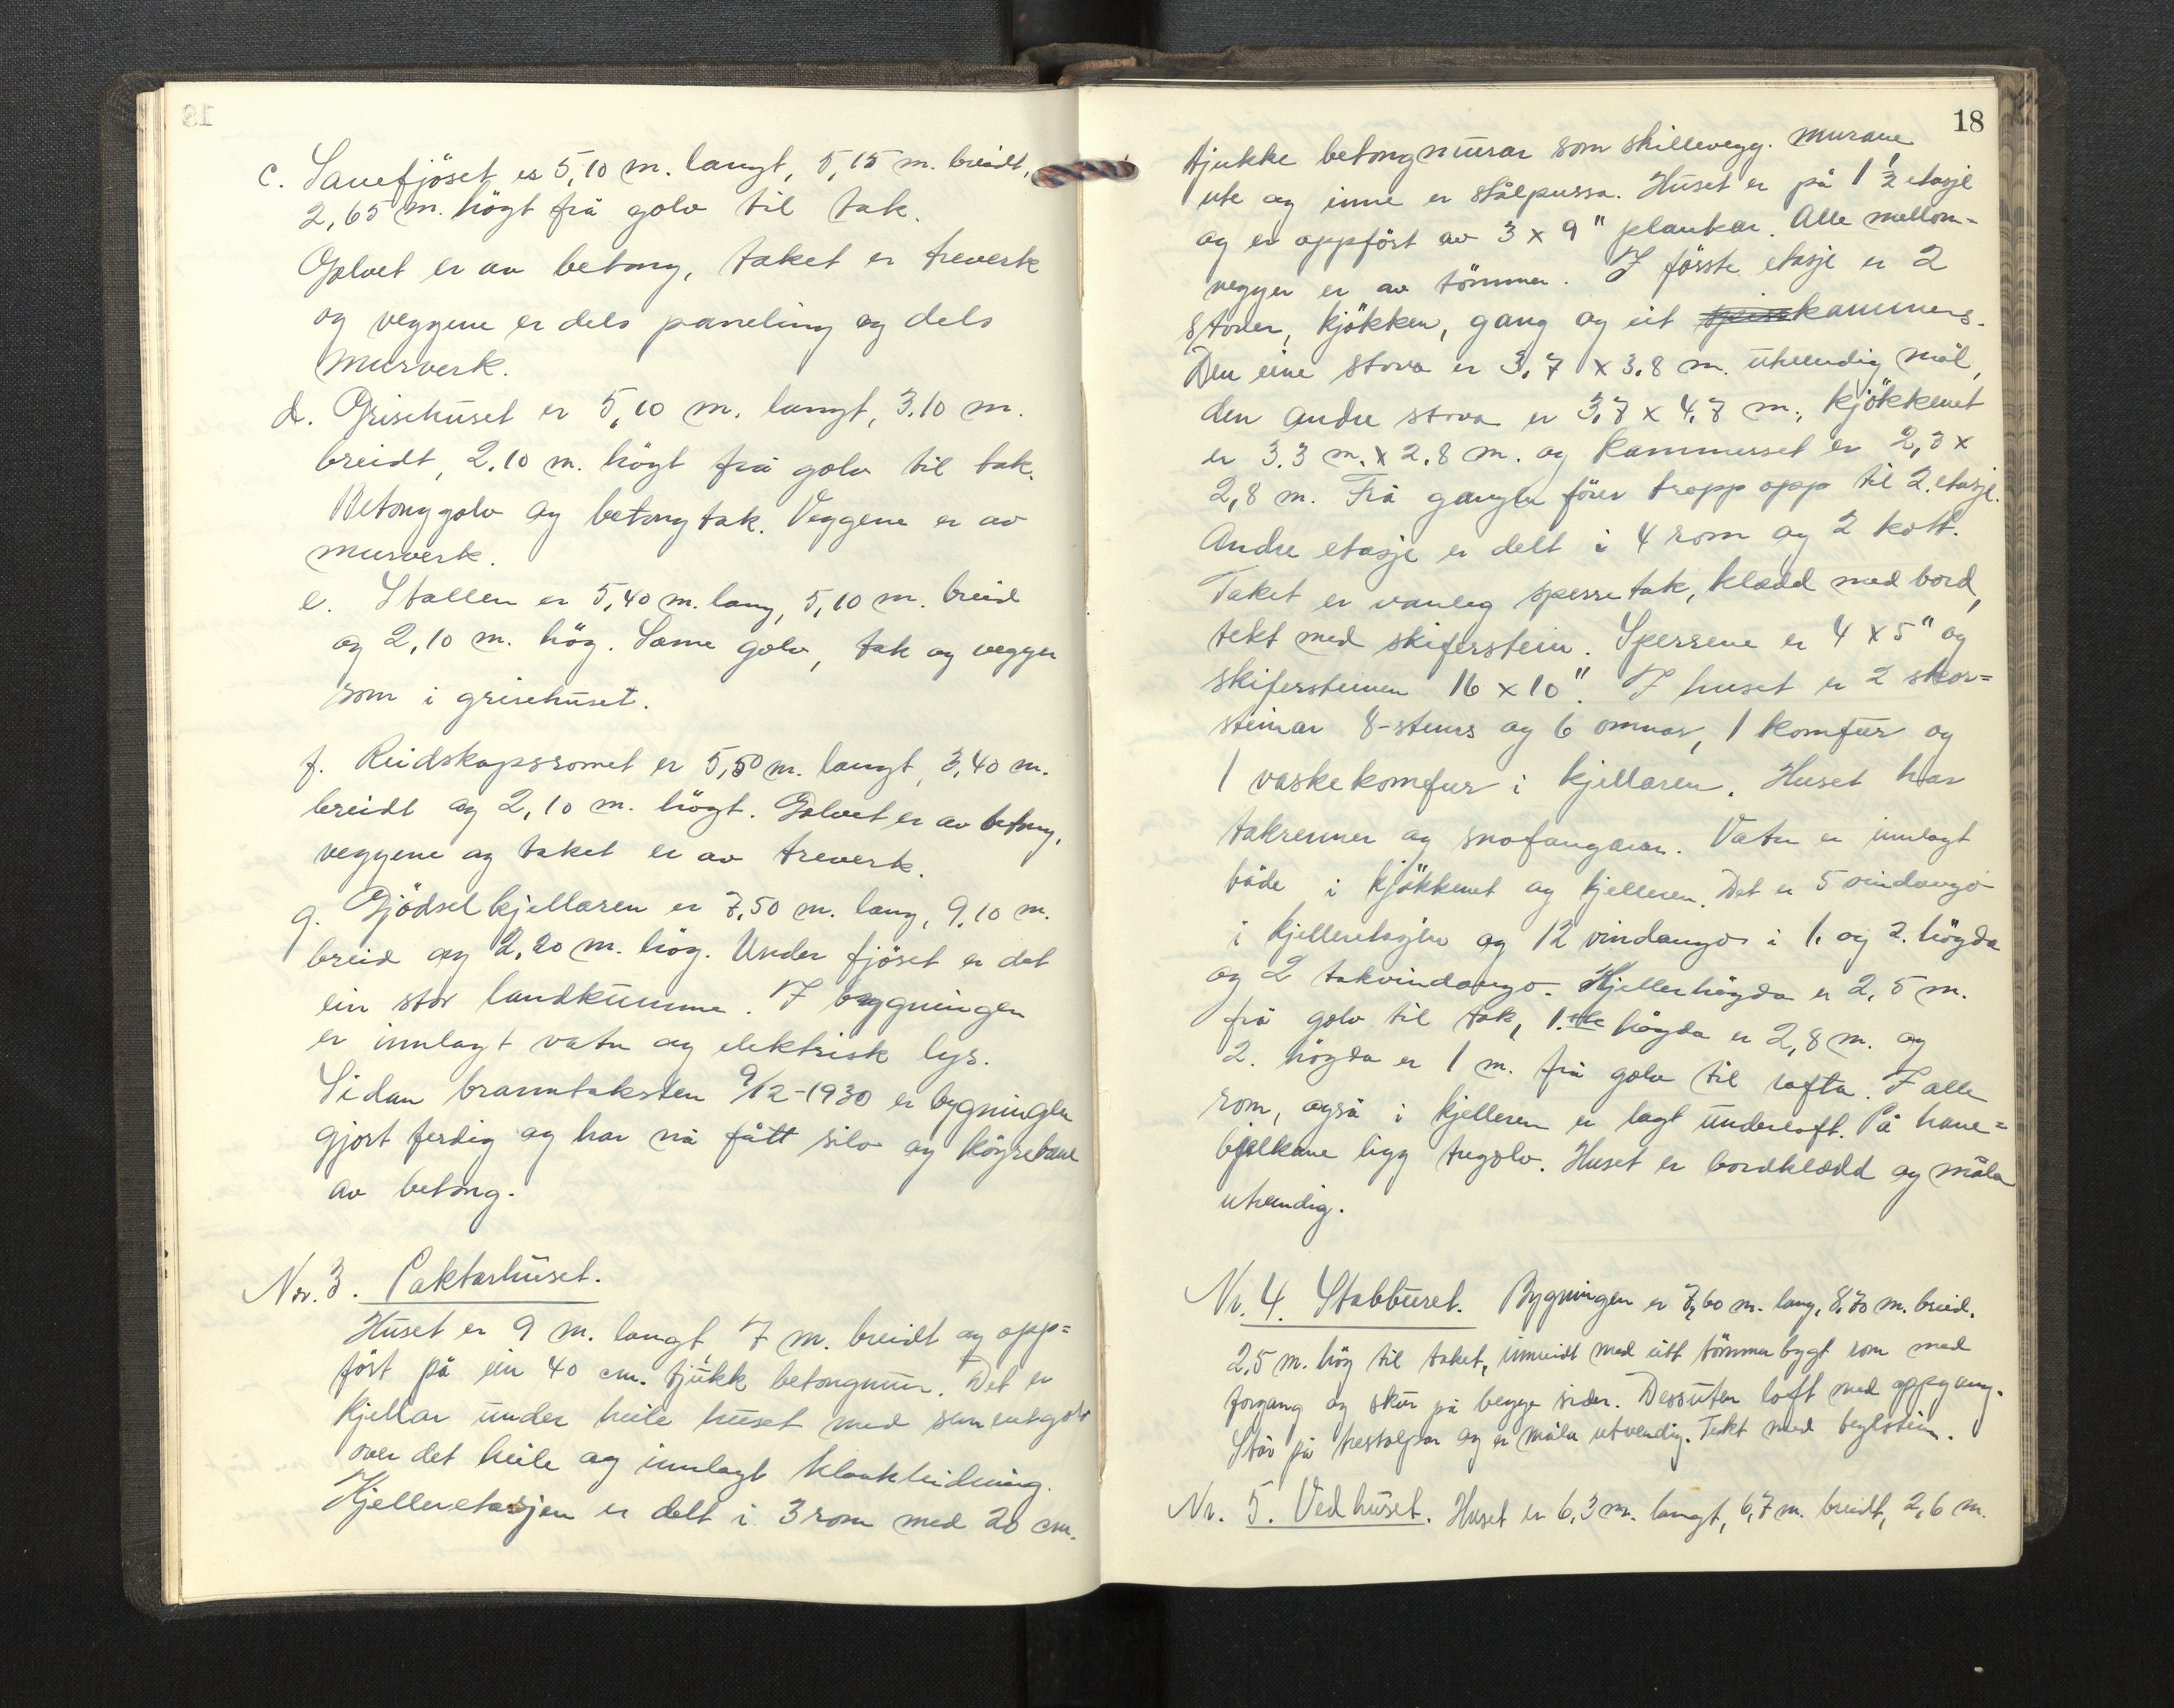 c. Sauefjöset er 5,10 m. langt, 5,15 m. breidt,
2,65 m. högt frå golv til tak.
Golvet er av betong, taket er treverk
og veggene er dels paneling og dels
murverk.
d. Grisehuset er 5,10 m. langt, 3,10 m.
breidt, 2,10 m. högt frå golv til tak.
Betonggolv og betongtak. Veggene er av
murverk.
e. Stallen er 5,40 m. lang, 5,10 m. breid
og 2,10 m. hög. Same golv, tak og vegger
som i grisehuset.
f. Reidskapsromet er 5,50 m. langt, 3,40 m.
breidt og 2,10 m. högt. Golvet er av betong,
veggene og taket er av treverk.
g. Gjödselkjellaren er 7,50 m. lang, 9,10 m.
breid og 2,20 m. hög. Under fjöset er det
ein stor landkumme. I bygningen
er innlagt vatn og elektrisk lys.
Sidan branntaksten 9/12-1930 er bygningen
gjort ferdig og har nå fått silo og köyrebane
av betong.
Nr. 3. Paktarhuset.
Huset er 9 m. langt, 7 m. breidt og opp=
fört på ein 40 cm. tjukk betongmur. Det er
kjellar under heile huset med sementgolv
over det heile og innlagt kloakleidning.
Kjelleretasjen er delt i 3 rom med 20 cm.
18
tjukke betongmurar som skillevegg. Murane
ute og inne er stålpussa. Huset er på 1 1/2 etasje
og er oppfört av 3 x 9" plankar. Alle mellom-
vegger er av tömmer. I förste etasje er 2
stover, kjökken, gang og eit kammers.
Den eine stova er 3,7 x 3,8 m. utvendig mål,
den andre stova er 3,7 x 4,7 m., kjökkenet
er 3.3 m. x 2.8 m. og kammerset er 2,3 x
2,8 m. Frå gangen förer tropp opp til 2. etasje.
Andre etasje er delt i 4 rom og 2 kott.
Taket er vanleg sperretak, klædd med bord,
tekt med skiferstein. Sperrene er 4 x 5" og
skifersteinen 16 x 10". I huset er 2 skor=
steinar 8-steins og 6 omnar, 1 komfur og
1 vaskekomfur i kjellaren. Huset har
takrenner og snofangarar. Vatn er innlagt
både i kjökkenet og kjelleren. Det er 5 vindaugo
i kjelleretasjen og 12 vindaugo i 1. og 2. högda
og 2 takvindaugo. Kjellerhögda er 2,5 m.
frå golv til tak, 1.ste högda er 2,8 m. og
2. högda er 1 m. frå golv til rafta. I alle
rom, også i kjelleren er lagt underloft. På hane=
bjelkane ligg tregolv. Huset er bordklædd og måla
utvendig.
Nr. 4. Stabburet. Bygningen er 7,60 m. lang, 8,70 m. breid.
2,5 m. hög til taket, innreidt med eitt tömmerbygt rom med
forgang og skur på begge sider. Dessuten loft med oppgang.
Står på trestolpar og er måla utvendig. Tekt med teglstein.
Nr. 5. Vedhuset. Huset er 6,3 m. langt, 6,7 m. breidt, 2,6 m.